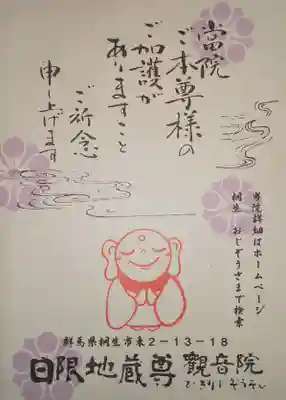 當院
ご本尊様の
ご加護が
ありますこと
ご祈念
申し上げます
当院詳細はホームページ
桐生 おじぞうさまで検索
群馬県桐生市東2-13-18
日限地蔵尊 観音院
ひぎりじぞうそん